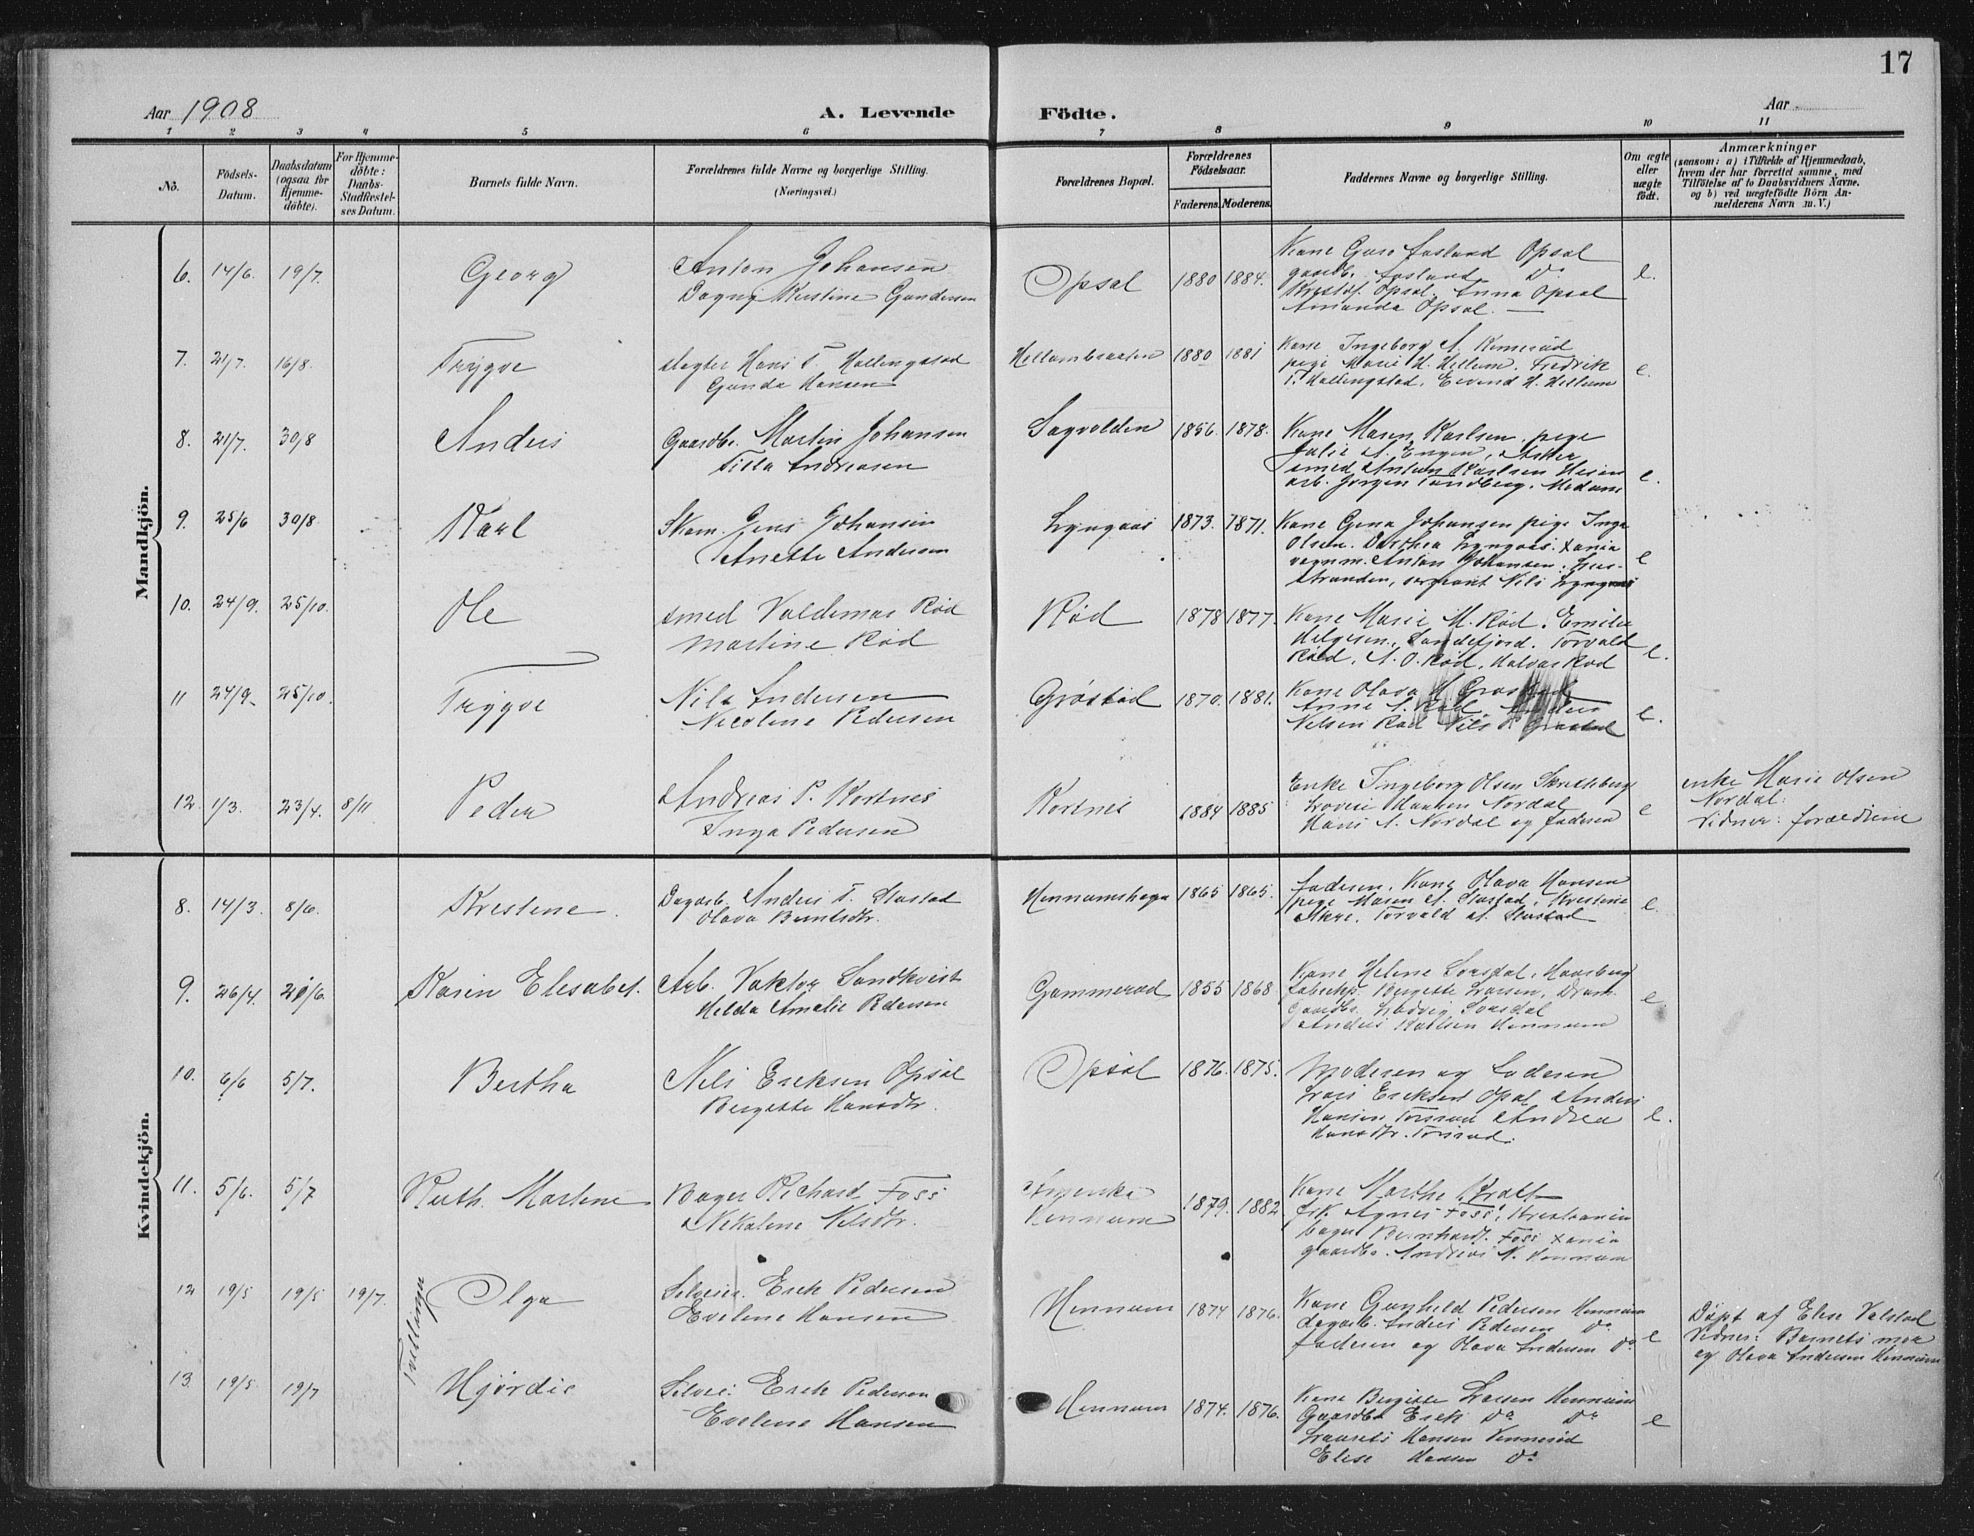 17
Aar 1908
A. Levende
Födte.
Aar
1 2 3 4 5 6 7 8 9 10 11
No.
Födsels-
Datum.
Daabsdatum
(ogsaa for
Hjemme-
döbte).
For Hjemme-
döbte:
Daabs-
Stadfestel-
ses Datum.
Barnets fulde Navn.
Forældrenes fulde Navne og borgerlige Stilling.
(Næringsvei.)
Forældrenes Bopæl.
Forældrenes
Födselsaar.
Faderens. Moderens.
Faddernes Navne og borgerlige Stilling.
Om ægte
eller
uægte
födt.
Anmærkninger
(saasom: a) i Tilfælde af Hjemmedaab,
hvem der har forrettet samme, med
Tilföielse af to Daabsvidners Navne.
og b) ved uægtefödte Börn An-
melderens Navn m. V.)
Mandkjön.
6. 14/6. 19/7. Georg
Anton Johansen
Dagny Kirstine Gundersen
Opsal 1880 1884.
Kone Guro Fosland Opsal
gaardb. Fosland Do
Kristof. Opsal. Anna Opsal
Amanda Opsal.
e.
7. 21/7. 16/8. Trygve
Slagter Hans T. Hallingstad
Gunda Hansen
Hellumbraaten 1880 1881
Kone Ingeborg A.
pige Marie H. Hellum. Fredrik
T. Hallingstad. Eivend H. Hellum
e.
8. 21/7. 30/8 Anders
Gaardbr. Martin Johansen
Tilla Andreasen
Sagvolden 1856. 1878.
Kone Maren Karlsen. pige
Julie A. Engen, Asker
smed Anton Karlsen
arb. Jørgen Tandberg.
e.
9. 25/6 30/8. Karl
Skom. Jens Johansen
Anette Andersen
Lyngaas 1873. 1871.
Kone Gina Johansen pige Inga
Olsen. Dorthea Lyngaas. Xania
vognm. Anton Johansen.
stranden, sergeant Nils Lyngaas
e
10. 24/9. 25/10. Ole
smed Valdemar Rød
Martine Rød
Rød 1878 1877.
Kone Marie M. Rød. Emilie
Helgesen, Sandefjord. Torvald
Rød. A. O. Rød, Halvar Rød
e.
11 24/9 25/10. Trygve
Nils Andersen
Nicoline Pedersen
Grøstad 1870. 1881.
Kone Olava
Anne A. Rød. Anders
Nelsen Rød Nils
e.
12. 1/3. 23/4. 8/11 Peder
Andreas P. Kortnes
Inga Pedersen
Kortnes 1884 1885
Enke Ingeborg Olsen
Lovise Haaken Nordal
Hans A. Nordal og faderen
e
enke Marie Olsen
Nordal.
Vidner: forældrene
Kvindekjön.
8. 14/3. 8/6. Kristine.
Dagarb. Anders T. Stustad
Olava Berntsdtr.
Hennumshagen 1865 1865.
faderen. Kone Olava Hansen
pige Maren A. Stustad, Kristine
Torvald A. Stustad
e.
9. 26/4. 21/6. Karin Elesabet.
Arb. Viktor Sandkvist
Hilda Amalie Pedersen
Gommerud 1855 1868
Kone Helene Sorsdal,
Bergitte Larsen, Dram.
Gaardbr. Ludvig Sorsdal
Anders Karlsen Hennum
e
10. 6/6 5/7. Bertha
Nils Eriksen Opsal
Bergitte Hansdtr.
Opsal 1876. 1875.
Moderen og Faderen
Lars Eriksen Opsal Anders
Hansen Torsrud Andrea
Hansdtr. Torsrud.
e.
11. 5/6. 5/7 Ruth Martine
Bager Richard Foss
Nikoline Nilsdtr.
Hennum 1879. 1882
Kone Marthe
frk. Agnes Foss, Kristiania
bager Bernhard Foss Xania
gaardbr. Andreas N. Hennum
12 19/5 19/5 19/7. Olga
Tvillinger
Selveier. Erik Pedersen
Eveline Hansen
Hennum 1874 1876.
Kone Gunhild Pedersen Hennum
dagarb. Anders Pedersen Do
faderen og Olava Andersen Do
e
Døpt af Elise Valstad
Vidner: Barnets mor
og Olava Andersen Hennum
13. 19/5. 19/7 Hjørdis
Selvei. Erik Pedersen
Eveline Hansen
Hennum 1874. 1876.
Kone Bergitte Larsen Hennum
Gaardbr Erik Do Do
Laurits Hansen
Elise Hansen Do
e